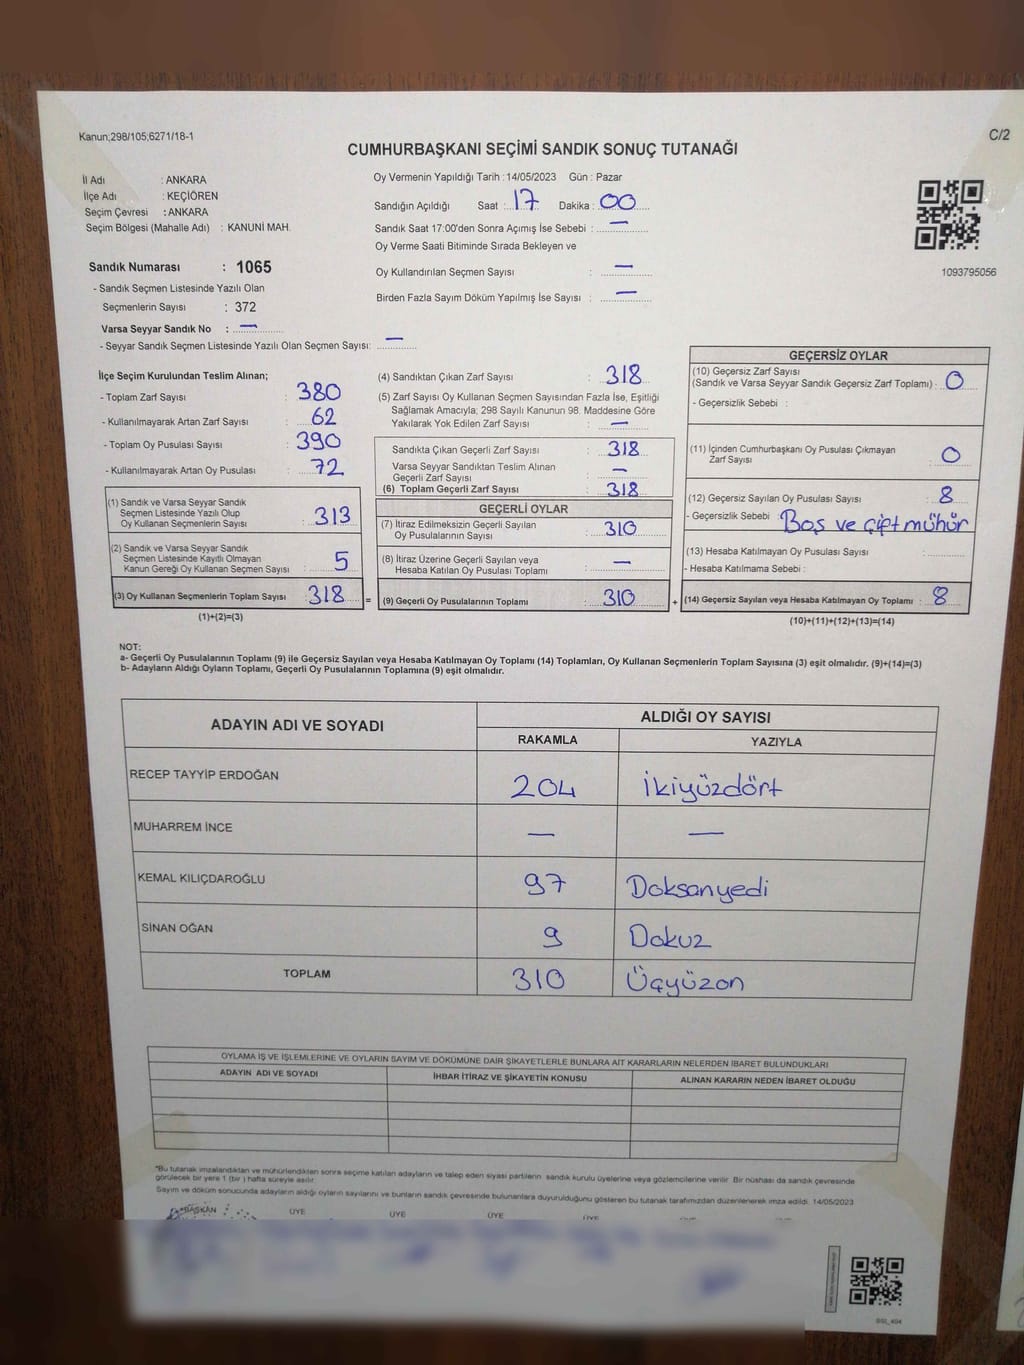 Kanun;298/105;6271/18-1
C/2
CUMHURBAŞKANI SEÇİMİ SANDIK SONUÇ TUTANAĞI
İl Adı : ANKARA
İlçe Adı : KEÇİÖREN
Seçim Çevresi : ANKARA
Seçim Bölgesi (Mahalle Adı) : KANUNİ MAH.
Sandık Numarası : 1065
- Sandık Seçmen Listesinde Yazılı Olan
Seçmenlerin Sayısı : 372
Varsa Seyyar Sandık No : —
- Seyyar Sandık Seçmen Listesinde Yazılı Olan Seçmen Sayısı: —
Oy Vermenin Yapıldığı Tarih : 14/05/2023 Gün : Pazar
Sandığın Açıldığı Saat : 17 Dakika : 00
Sandık Saat 17:00'den Sonra Açımış İse Sebebi : —
Oy Verme Saati Bitiminde Sırada Bekleyen ve
Oy Kullandırılan Seçmen Sayısı : —
Birden Fazla Sayım Döküm Yapılmış İse Sayısı : —
1093795056
İlçe Seçim Kurulundan Teslim Alınan;
- Toplam Zarf Sayısı : 380
- Kullanılmayarak Artan Zarf Sayısı : 62
- Toplam Oy Pusulası Sayısı : 390
- Kullanılmayarak Artan Oy Pusulası : 72
(1) Sandık ve Varsa Seyyar Sandık
Seçmen Listesinde Yazılı Olup
Oy Kullanan Seçmenlerin Sayısı : 313
(2) Sandık ve Varsa Seyyar Sandık
Seçmen Listesinde Kayıtlı Olmayan
Kanun Gereği Oy Kullanan Seçmen Sayısı : 5
(3) Oy Kullanan Seçmenlerin Toplam Sayısı : 318 =
(1)+(2)=(3)
(4) Sandıktan Çıkan Zarf Sayısı : 318
(5) Zarf Sayısı Oy Kullanan Seçmen Sayısından Fazla İse, Eşitliği
Sağlamak Amacıyla; 298 Sayılı Kanunun 98. Maddesine Göre
Yakılarak Yok Edilen Zarf Sayısı : —
Sandıkta Çıkan Geçerli Zarf Sayısı : 318
Varsa Seyyar Sandıktan Teslim Alınan
Geçerli Zarf Sayısı : —
(6) Toplam Geçerli Zarf Sayısı : 318
GEÇERLİ OYLAR
(7) İtiraz Edilmeksizin Geçerli Sayılan
Oy Pusulalarının Sayısı : 310
(8) İtiraz Üzerine Geçerli Sayılan veya
Hesaba Katılan Oy Pusulası Toplamı : —
(9) Geçerli Oy Pusulalarının Toplamı : 310 +
GEÇERSİZ OYLAR
(10) Geçersiz Zarf Sayısı
(Sandık ve Varsa Seyyar Sandık Geçersiz Zarf Toplamı) : 0
- Geçersizlik Sebebi :
(11) İçinden Cumhurbaşkanı Oy Pusulası Çıkmayan
Zarf Sayısı : 0
(12) Geçersiz Sayılan Oy Pusulası Sayısı : 8
- Geçersizlik Sebebi : Boş ve çift mühür
(13) Hesaba Katılmayan Oy Pusulası Sayısı :
- Hesaba Katılmama Sebebi :
(14) Geçersiz Sayılan veya Hesaba Katılmayan Oy Toplamı : 8
(10)+(11)+(12)+(13)=(14)
NOT:
a- Geçerli Oy Pusulalarının Toplamı (9) ile Geçersiz Sayılan veya Hesaba Katılmayan Oy Toplamı (14) Toplamları, Oy Kullanan Seçmenlerin Toplam Sayısına (3) eşit olmalıdır. (9)+(14)=(3)
b- Adayların Aldığı Oyların Toplamı, Geçerli Oy Pusulalarının Toplamına (9) eşit olmalıdır.
ADAYIN ADI VE SOYADI ALDIĞI OY SAYISI
RAKAMLA YAZIYLA
RECEP TAYYİP ERDOĞAN 204 İkiyüzdört
MUHARREM İNCE — —
KEMAL KILIÇDAROĞLU 97 Doksanyedi
SİNAN OĞAN 9 Dokuz
TOPLAM 310 Üçyüzon
OYLAMA İŞ VE İŞLEMLERİNE VE OYLARIN SAYIM VE DÖKÜMÜNE DAİR ŞİKAYETLERLE BUNLARA AİT KARARLARIN NELERDEN İBARET BULUNDUKLARI
ADAYIN ADI VE SOYADI İHBAR İTİRAZ VE ŞİKAYETİN KONUSU ALINAN KARARIN NEDEN İBARET OLDUĞU
*Bu tutanak imzalandıktan ve mühürlendikten sonra seçime katılan adayların ve talep eden siyasi partilerin sandık kurulu üyelerine veya gözlemcilerine verilir. Bir nüshası da sandık çevresinde
görülecek bir yere 1 (bir ) hafta süreyle asılır.
Sayım ve döküm sonucunda adayların aldığı oyların sayılarını ve bunların sandık çevresinde bulunanlara duyurulduğunu gösteren bu tutanak tarafımızdan düzenlenerek imza edildi. 14/05/2023
BAŞKAN ÜYE ÜYE ÜYE ÜYE